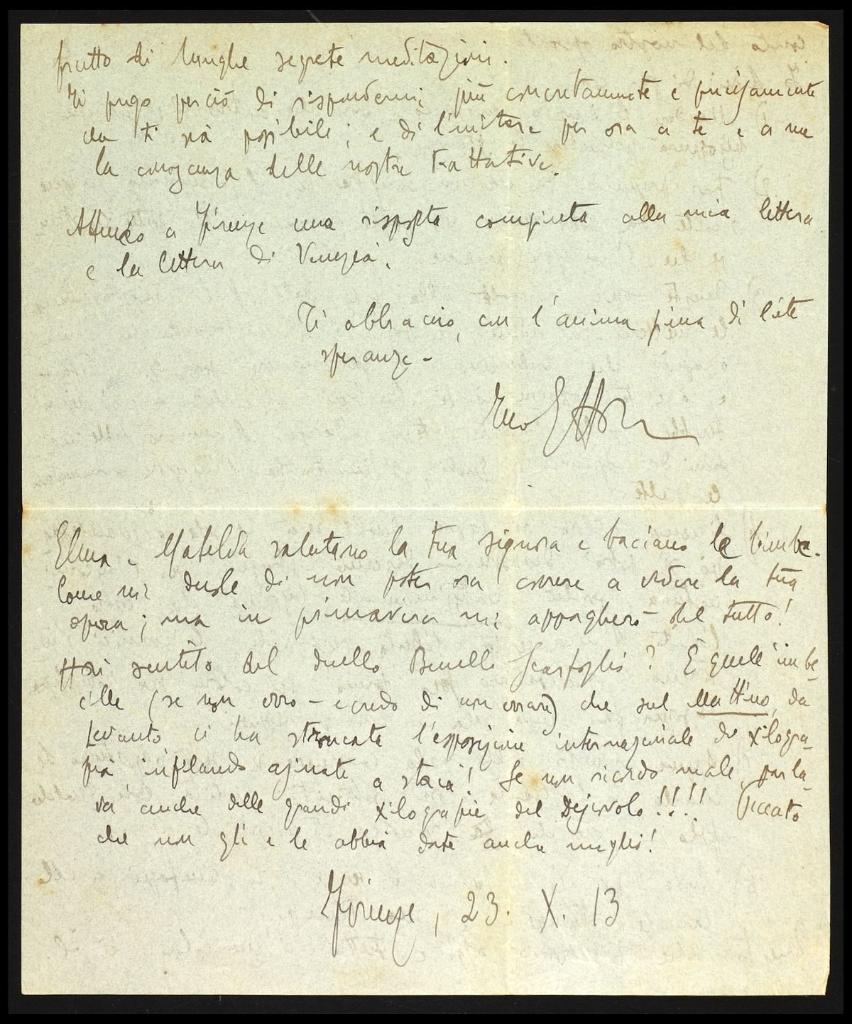 frutto di lunghe segrete meditazioni.
Ti prego perciò di rispondermi più concretamente e precisamente
che ti sia possibile; e di limitare per ora a te e a me
la conoscenza delle nostre trattative.
Attendo a Firenze una risposta compiuta alla mia lettera
e la lettera di Venezia.
Ti abbraccio, con l'anima piena di liete
speranze -
Tuo Ettore
Elena e Matelda salutano la tua signora e baciano le bimbe.
Come mi duole di non poter ora correre a vedere la tua
opera; ma in primavera mi appagherò del tutto!
Hai sentito del duello Benelli Scarfoglio? È quell'imbe-
cille (se non erro - e credo di non errare) che sul Mattino, da
Levanto ci ha stroncata l'esposizione internazionale di xilogra-
fia infilando asinate a staia! Se non ricordo male, parla-
va anche delle grandi xilografie del Dejerolo!!!! Peccato
che non gli e le abbia date anche meglio!
Firenze, 23. X. 13